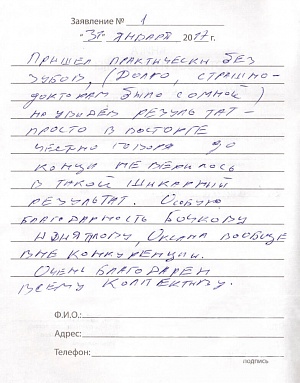 Заявление № 1
"31" января 2017 г.
Пришел практически без
зубов, (долго, страшно-
докторам было со мной)
но увидев результат-
просто в восторге
честно говоря до
конца не верилось
в такой шикарний
результат. Особую
благодарность Бочкову
Оксана вообще
вне конкуренции.
Очень благодарен
всему коллективу.
Ф.И.О.:
Адрес:
Телефон:
подпись